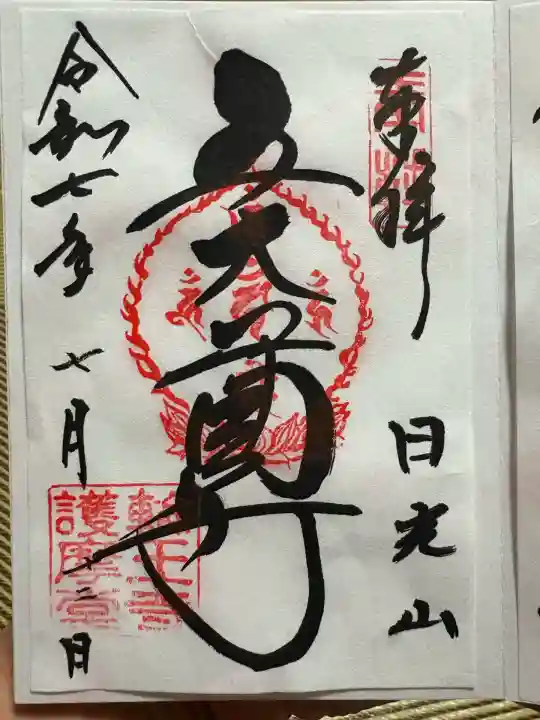 奉拝
日光山
五大尊
令和七年 七月 十二日
輪王寺
護摩堂